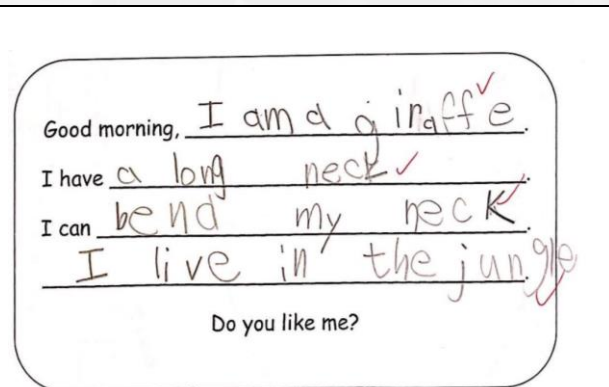 Good morning, I am a giraffe.
I have a long neck.
I can bend my neck.
I live in the jungle.
Do you like me?